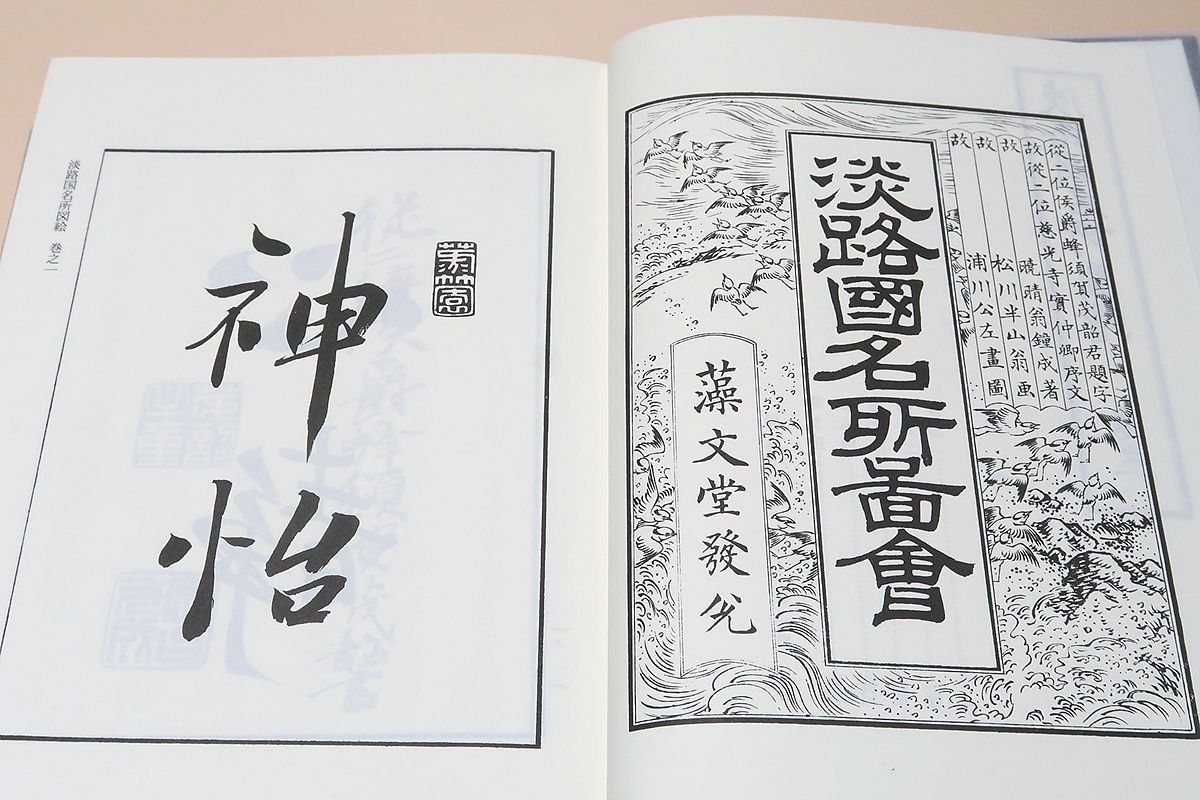 從二位侯爵蜂須賀茂韶君題字
故從二位慈光寺實仲卿序文
故 曉晴翁鐘成著
故 松川半山翁画
故 浦川公左畫圖
淡路國名所圖會
藻文堂發兌
神怡
淡路国名所図絵 巻之一